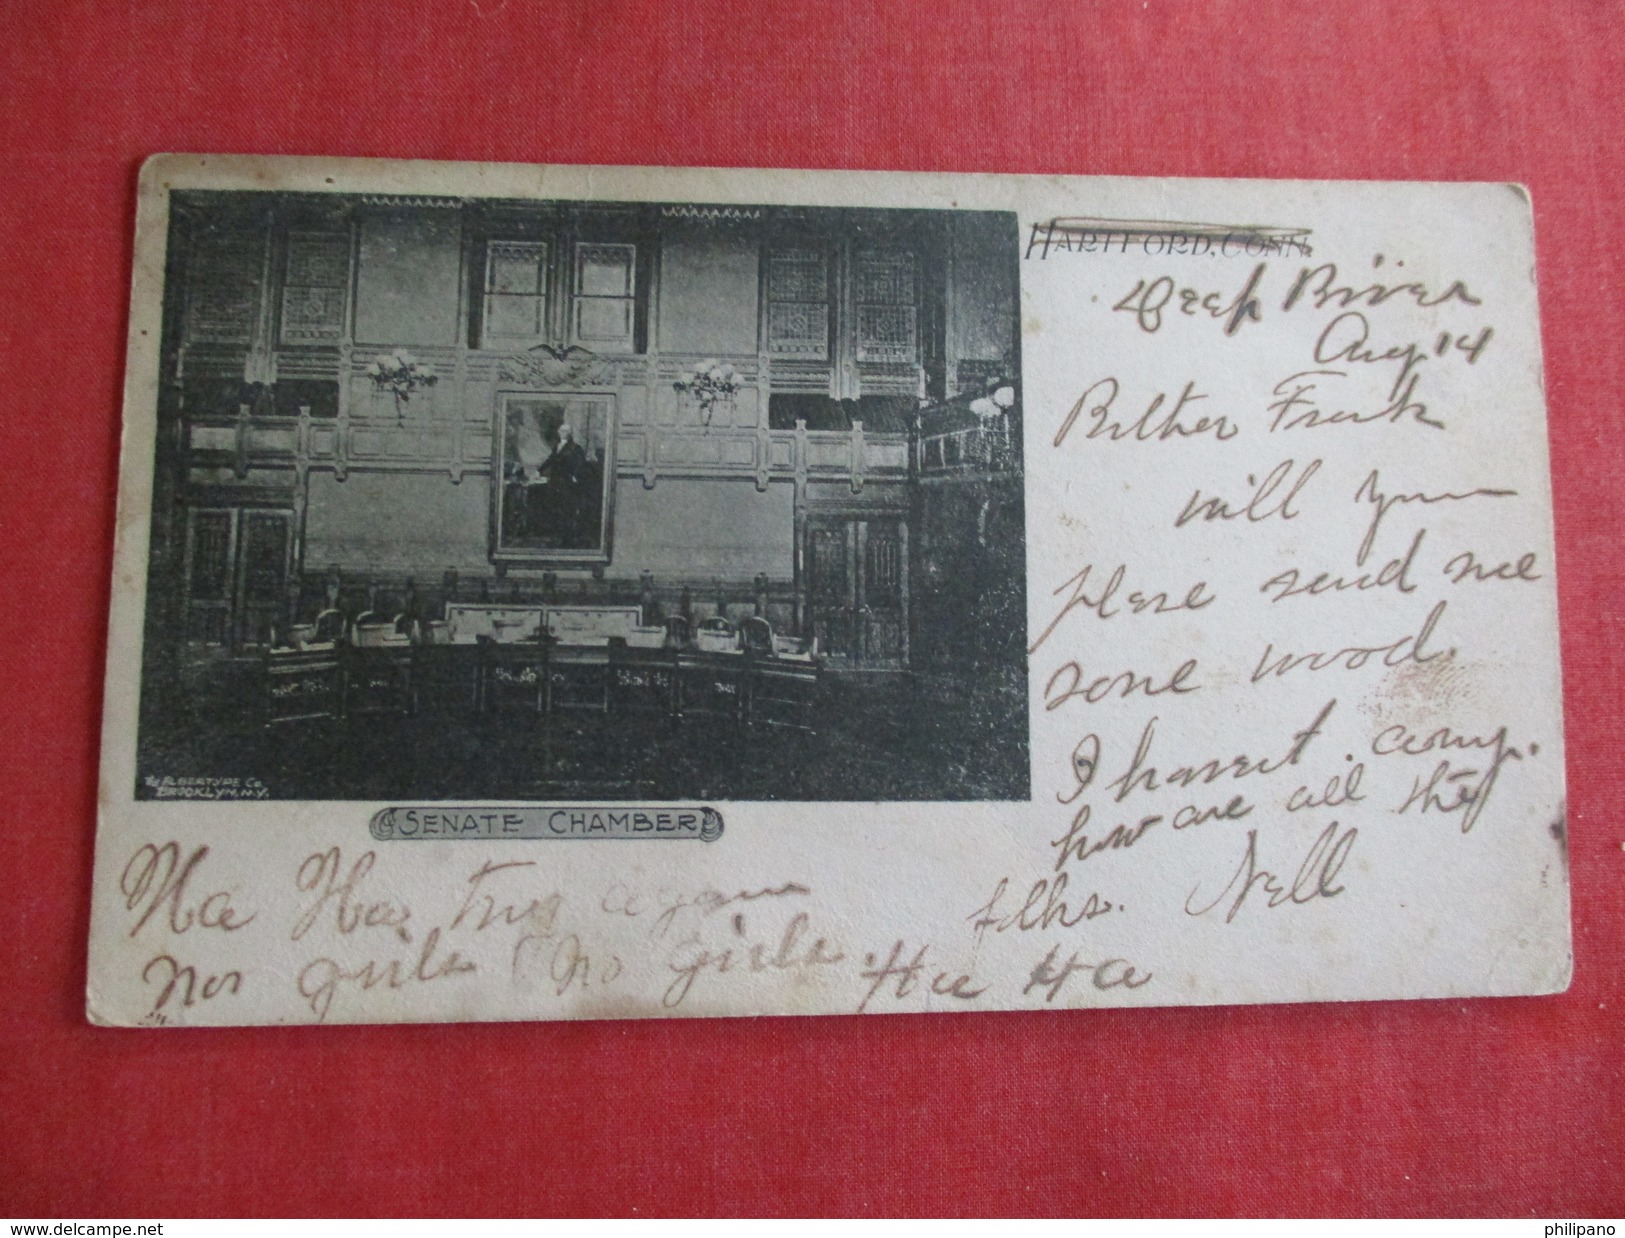 HARTFORD, CONN.
Deep River
Aug 14
Brother Frank
will you
please send me
some wood.
I havent any.
how are all the
folks. Nell
THE ALBERTYPE CO.
BROOKLYN, N.Y.
SENATE CHAMBER
Ha Ha
girls no girls. Ha Ha
www.delcampe.net
philipano